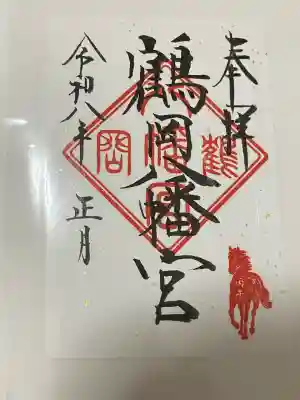 奉拝
鶴岡八幡宮
令和八年 正月
鶴
岡